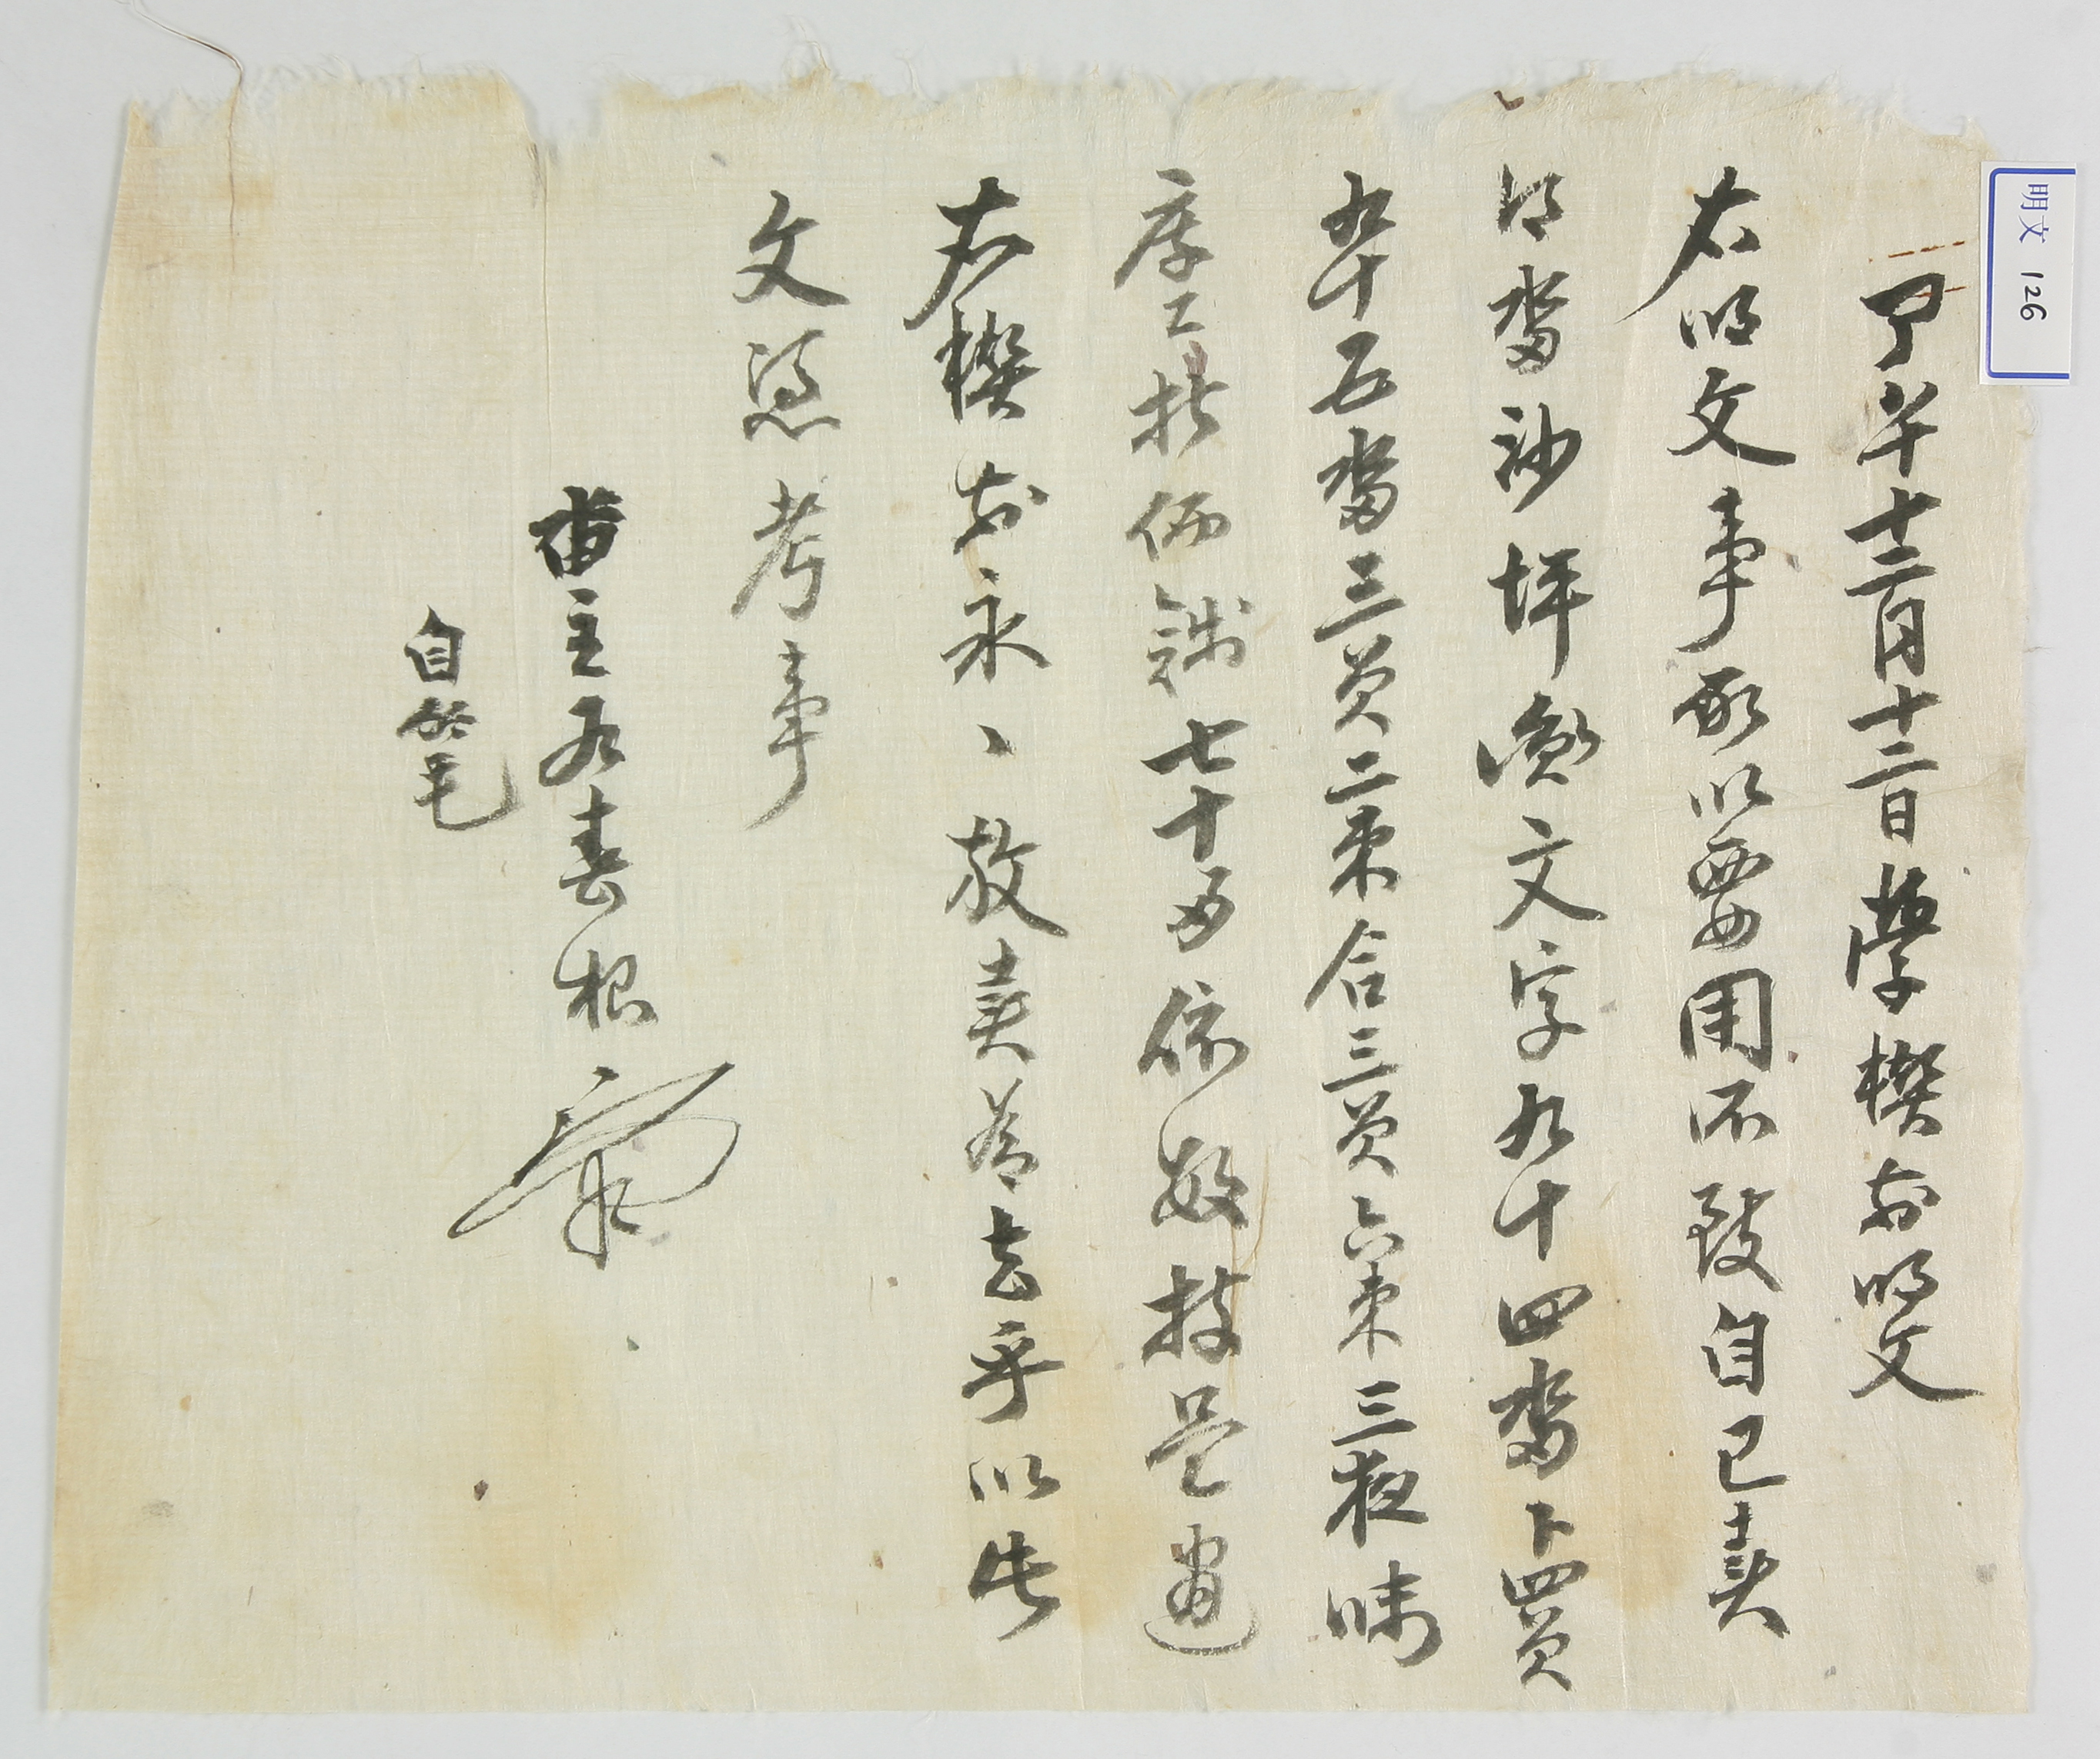 甲午十二月十二日學稧前明文
右明文事段以要用所致自己賣
得畓沙坪員文字九十四畓卜四負
九十五畓三負二束合三負六束三夜味
庫乙折価錢七十五依數捧是遣
右稧前永、放賣爲去乎以此
文憑考事
畓主 春根
自筆
明文 126